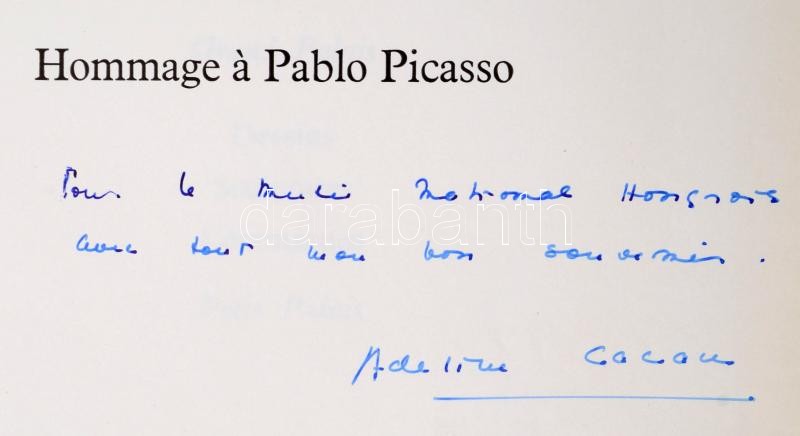 Hommage à Pablo Picasso
Pour le Musée National Hongrois
darabanth
avec tout mon bon souvenir.
Adeline Cacan